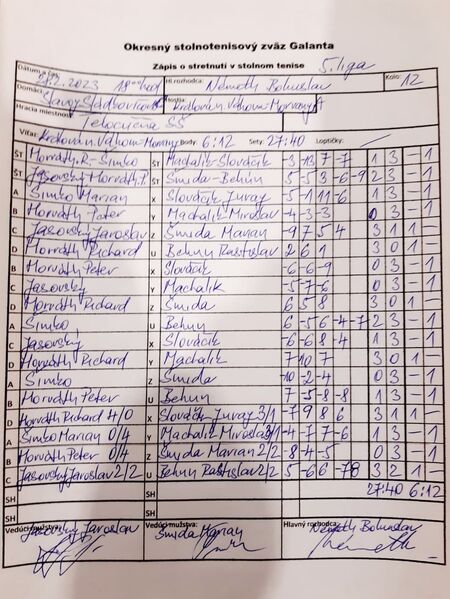 Okresný stolnotenisový zväz Galanta
Zápis o stretnutí v stolnom tenise 5. liga
Dátum a čas: 2.2023 18 00 hod Hl. rozhodca: Németh Bohuslav Kolo: 12
Domáci: Slavoj Sládkovičovo Hostia: Kráľová n. Váhom - Morvany A
Hracia miestnosť: Telocvičňa SŠ
Víťaz: Kráľová n. Váhom - Morvany Body: 6:12 Sety: 27:40 Loptičky: /
ŠT Horváth R. - Šimko ŠT Machalík - Slovščík -3 -13 7 -7 1 3 - 1
ŠT Jasovský Horváth P. ŠT Šmida - Behún -5 -5 3 6 -9 2 3 - 1
A Šimko Marian X Slovščík Juraj -5 -1 11 -6 1 3 - 1
B Horváth Peter Y Machalík Miroslav -4 -3 -3 0 3 - 1
C Jasovský Jaroslav Z Šmida Marian -9 7 5 4 3 1 1 -
D Horváth Richard U Behún Rastislav 2 6 1 3 0 1 -
B Horváth Peter X Slovščík -6 -6 -9 0 3 - 1
C Jasovský Y Machalík -5 -7 -6 0 3 - 1
D Horváth Richard Z Šmida 6 5 8 3 0 1 -
A Šimko U Behún 6 -5 6 -4 -7 2 3 - 1
C Jasovský X Slovščík -6 -6 8 -4 1 3 - 1
D Horváth Richard Y Machalík 7 10 7 3 0 1 -
A Šimko Z Šmida -10 -2 -4 0 3 - 1
B Horváth Peter U Behún 7 -5 -8 -8 1 3 - 1
D Horváth Richard 4/0 X Slovščík Juraj 3/1 -7 9 8 6 3 1 1 -
A Šimko Marian 0/4 Y Machalík Miroslav 3/1 -4 7 -7 -6 1 3 - 1
B Horváth Peter 0/4 Z Šmida Marian 2/2 -8 -4 -5 0 3 - 1
C Jasovský Jaroslav 2/2 U Behún Rastislav 2/2 -5 -6 6 7 8 3 2 1 -
SH SH 27:40 6:12
SH SH
Vedúci mužstva: Jasovský Jaroslav Vedúci mužstva: Šmida Marian Hlavný rozhodca: Németh Bohuslav